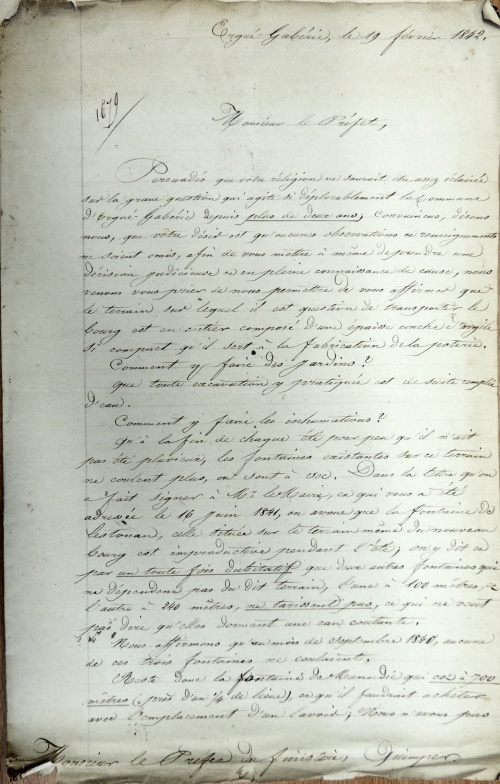 Ergué-Gabéric, le 19 février 1842.
1879
Monsieur le Préfet,
Persuadés que votre réligion ne saurait être assez éclairée
sur la grave question qui agite si déplorablement la Commune
d'Ergué-Gabéric depuis plus de deux ans, Convaincus, disons
nous, que votre désir est qu'aucunes observations et renseignements
ne soient omis, afin de vous mettre à même de prendre une
décision judicieuse et en pleine connaissance de cause, nous
venons vous prier de nous permettre de vous affirmer que
le terrain sur lequel il est question de transporter le
bourg est en entier composé d'une épaisse couche d'argile
si compact qu'il sert à la fabrication de la poterie.
Comment y faire des jardins?
que toute excavation y pratiquée est de suite remplie
d'eau.
Comment y faire les inhumations?
Qu'à la fin de chaque été pour peu qu'il n'ait
pas été pluvieux, les fontaines existantes sur ce terrain
ne coulent plus, ou sont à sec. Dans la lettre qu'on
a fait signer à Mr. le Maire, et qui vous a été
adressée le 16 juin 1841, on avoue que la fontaine de
Lestonan, celle située sur le terrain même du nouveau
bourg est improductive pendant l'été; on y dit et
par un toute fois dubitatif que deux autres fontaines qui
ne dépendent pas du dit terrain, l'une à 100 mètres, et
l'autre à 240 mètres, ne tarissent pas, ce qui ne veut
pas dire qu'elles donnent une eau coulante.
Nous affirmons qu'au mois de Septembre 1840, aucune
de ces trois fontaines ne coulaient.
Reste donc la fontaine de qui est à 700
mètres (près d'un 1/4 de lieue), et qu'il faudrait acheter
avec l'emplacement d'un lavoir; Nous n'avons pas
Monsieur le Préfet du finistère, Quimper.